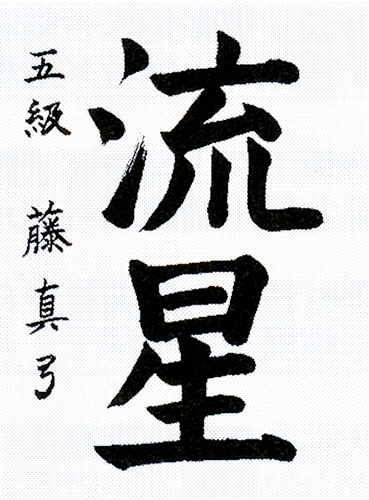 流星
五級 藤真弓